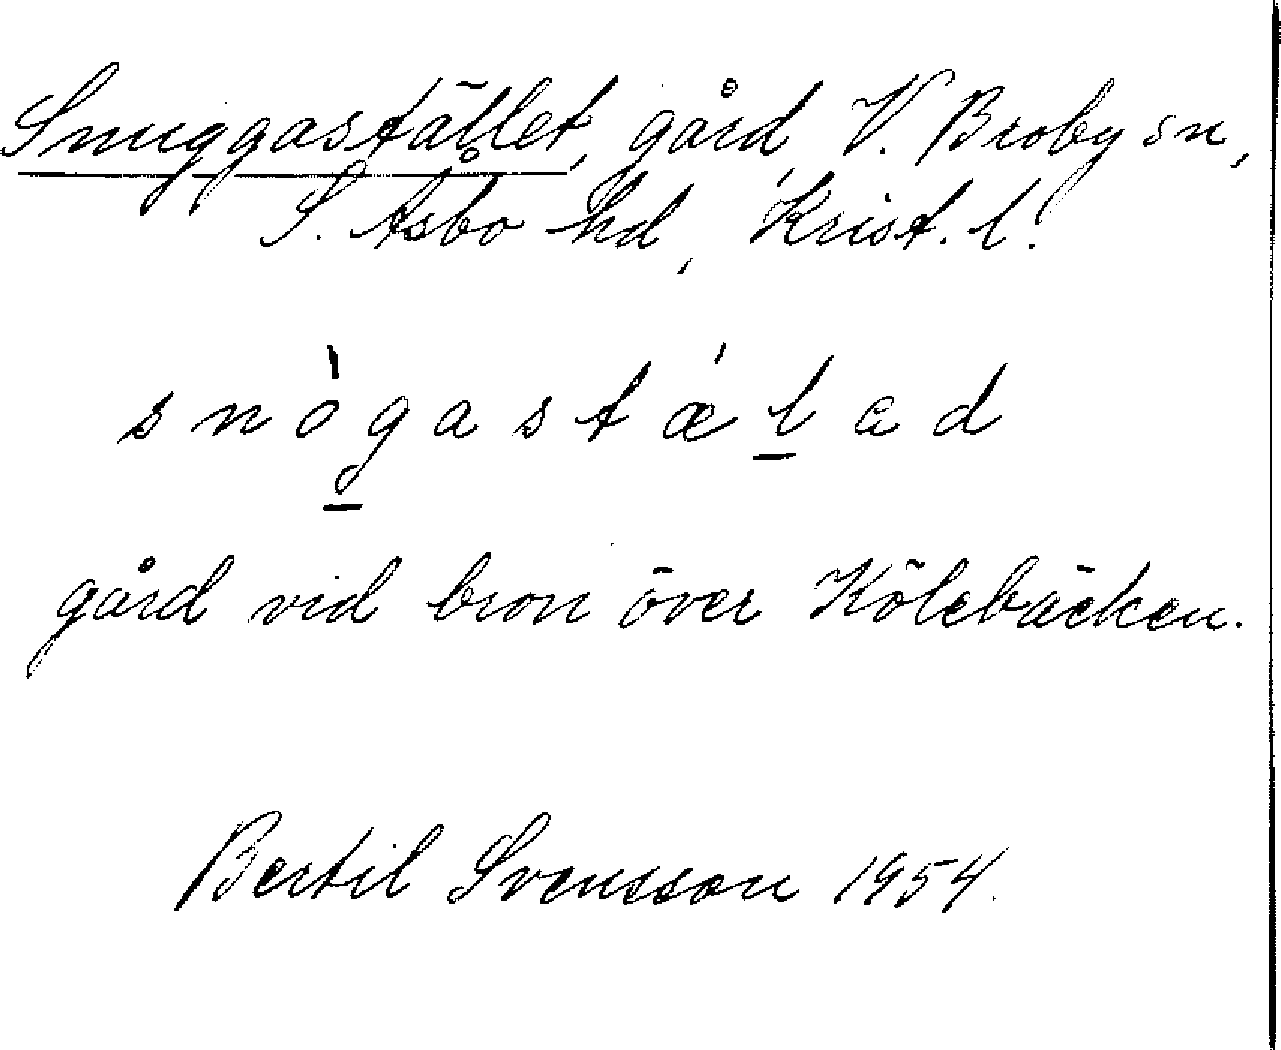 Snuggastället, gård, V. Broby sn,
S. Åsbo hd, Krist. l.
snògastǽlad
gård vid bron över Kölebäcken.
Bertil Svensson 1954.